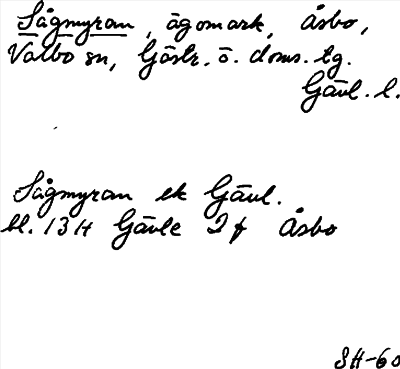 Sågmyran, ägomark, Åsbo,
Valbo sn, Gästr. ö. doms. tg.
Gävl. l.
Sågmyran ek Gävl.
bl. 13H Gävle 2f Åsbo
SH-60